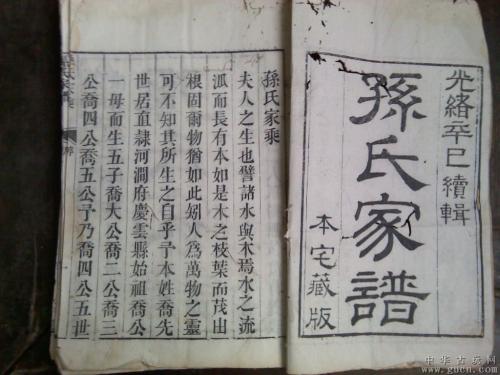 光緒辛巳 續輯
孫氏家譜
本宅藏版
孫氏家乘
夫人之生也譬諸水與木焉水之流
派而長有本如是木之枝葉而茂由
根固爾物猶如此矧人為萬物之靈
可不知其所生之自乎予本姓喬先
世居直隸河澗府慶雲縣始祖喬公
一母而生五子喬大公喬二公喬三
公喬四公喬五公予乃喬四公五世
中华古玩网
www.gucn.com